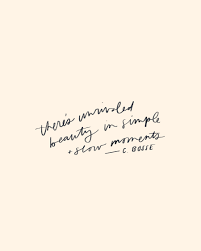 there's unrivaled
beauty in simple
+ slow moments
— C. BOSSE